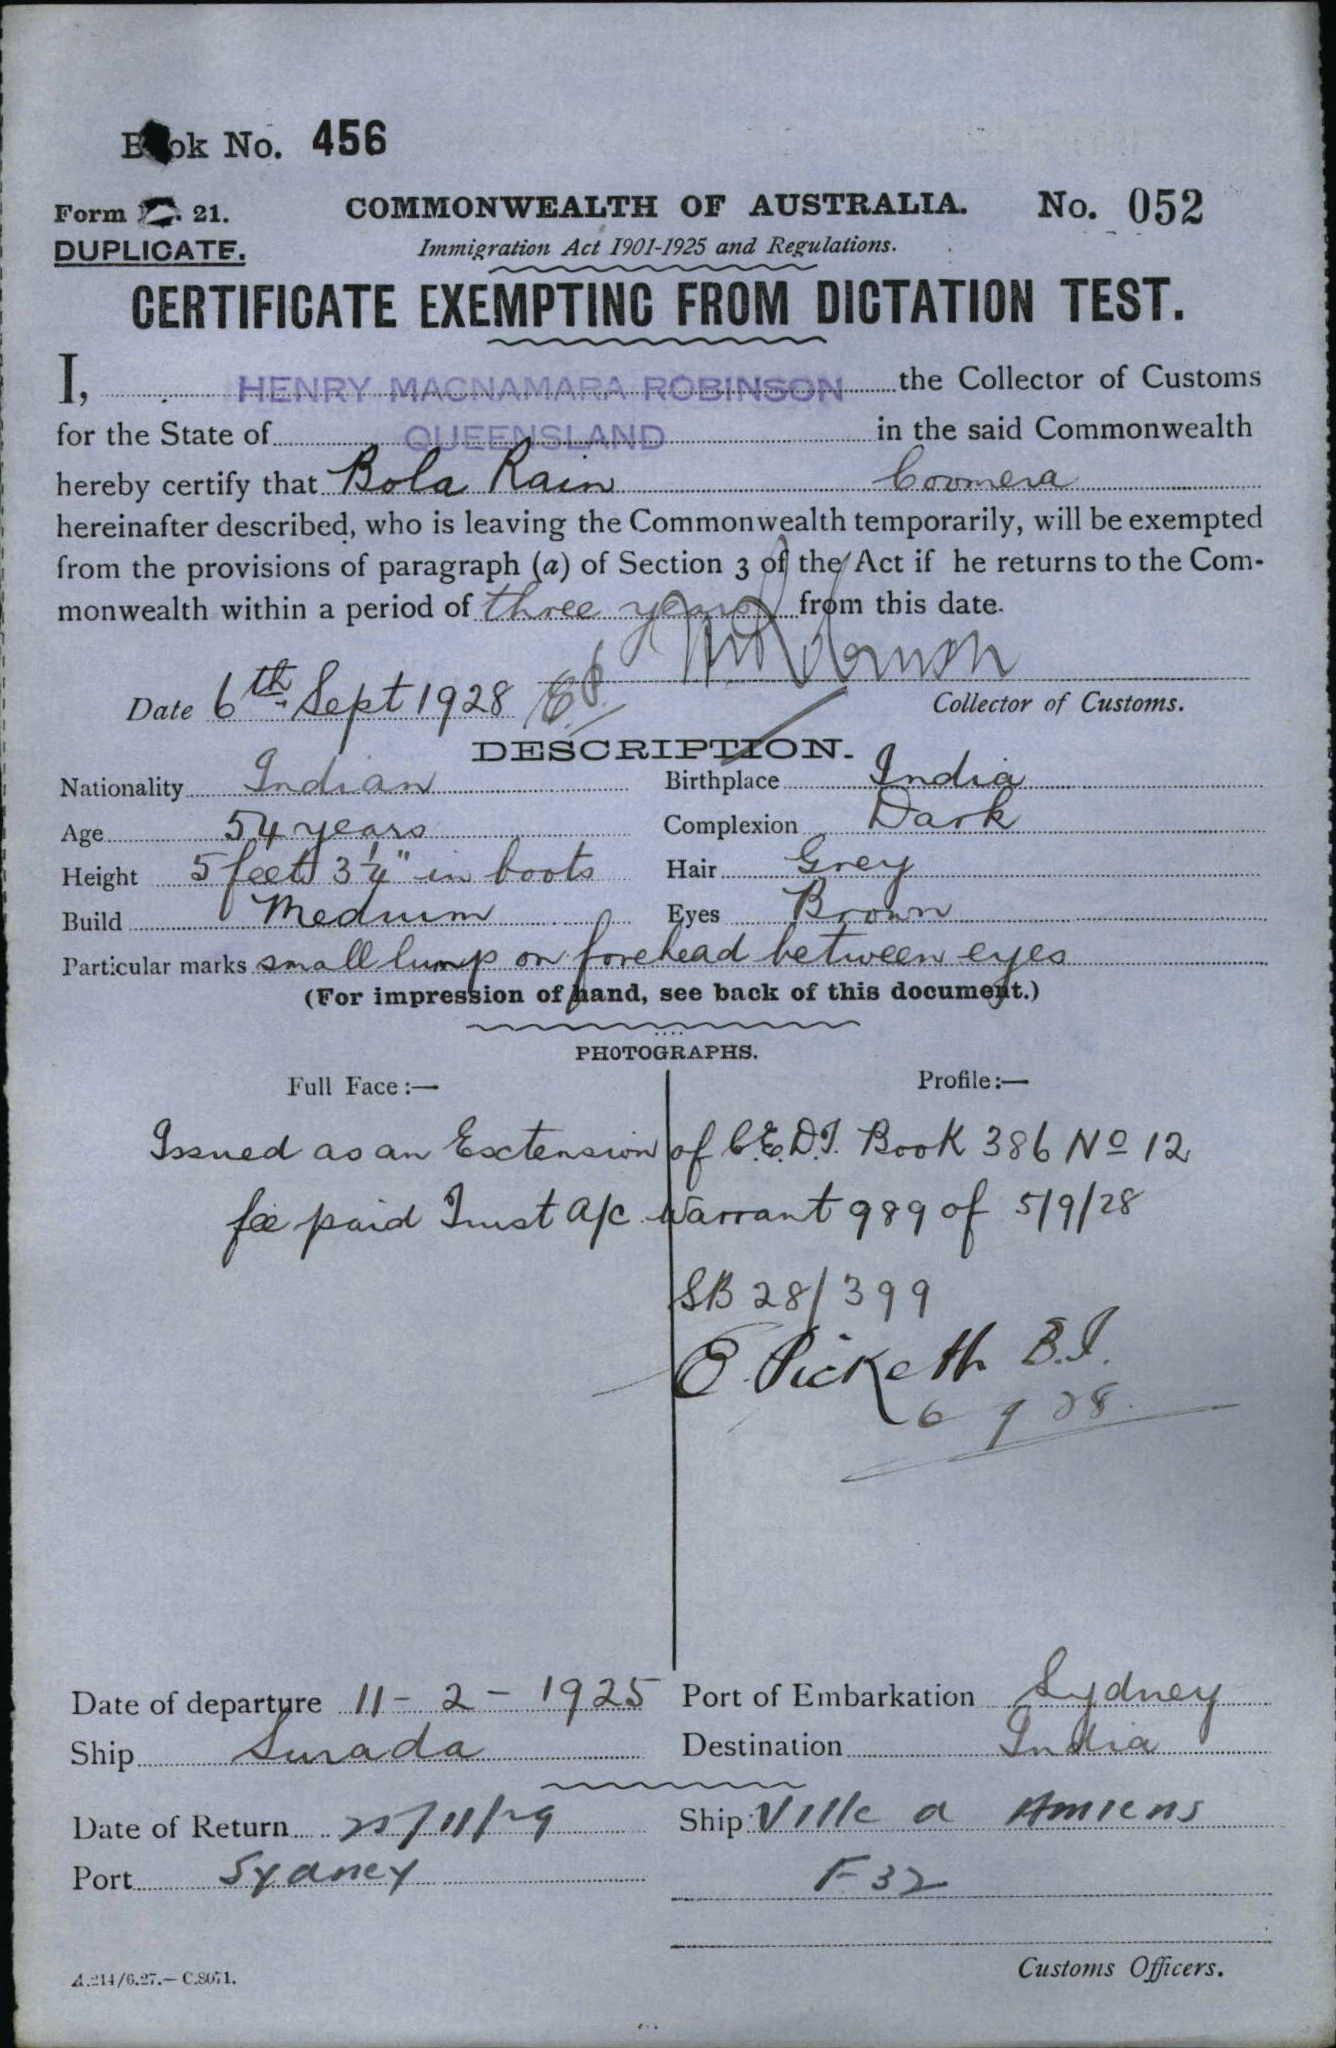 Book No. 456
Form 21.
COMMONWEALTH OF AUSTRALIA.
No. 052
DUPLICATE.
Immigration Act 1901-1925 and Regulations.
CERTIFICATE EXEMPTING FROM DICTATION TEST.
I, HENRY MACNAMARA ROBINSON the Collector of Customs
for the State of QUEENSLAND in the said Commonwealth
hereby certify that Bola Rain Coomera
hereinafter described, who is leaving the Commonwealth temporarily, will be exempted
from the provisions of paragraph (a) of Section 3 of the Act if he returns to the Com-
monwealth within a period of three years from this date.
Date 6th Sept 1928 E.P.
Collector of Customs.
DESCRIPTION.
Nationality Indian Birthplace India
Age 54 years Complexion Dark
Height 5 feet 3 1/4" in boots Hair Grey
Build Medium Eyes Brown
Particular marks small lump on forehead between eyes
(For impression of hand, see back of this document.)
PHOTOGRAPHS.
Full Face:— Profile:—
Issued as an Exctension of C.E.D.T. Book 386 No 12
fee paid Trust A/c Warrant 989 of 5/9/28
SB 28/399
E. Picketh B.I.
6 9 28.
Date of departure 11-2-1925 Port of Embarkation Sydney
Ship Surada Destination India
Date of Return /11/29 Ship Ville d Amiens
Port Sydney F 32
Customs Officers.
A.214/6.27.—C.8071.